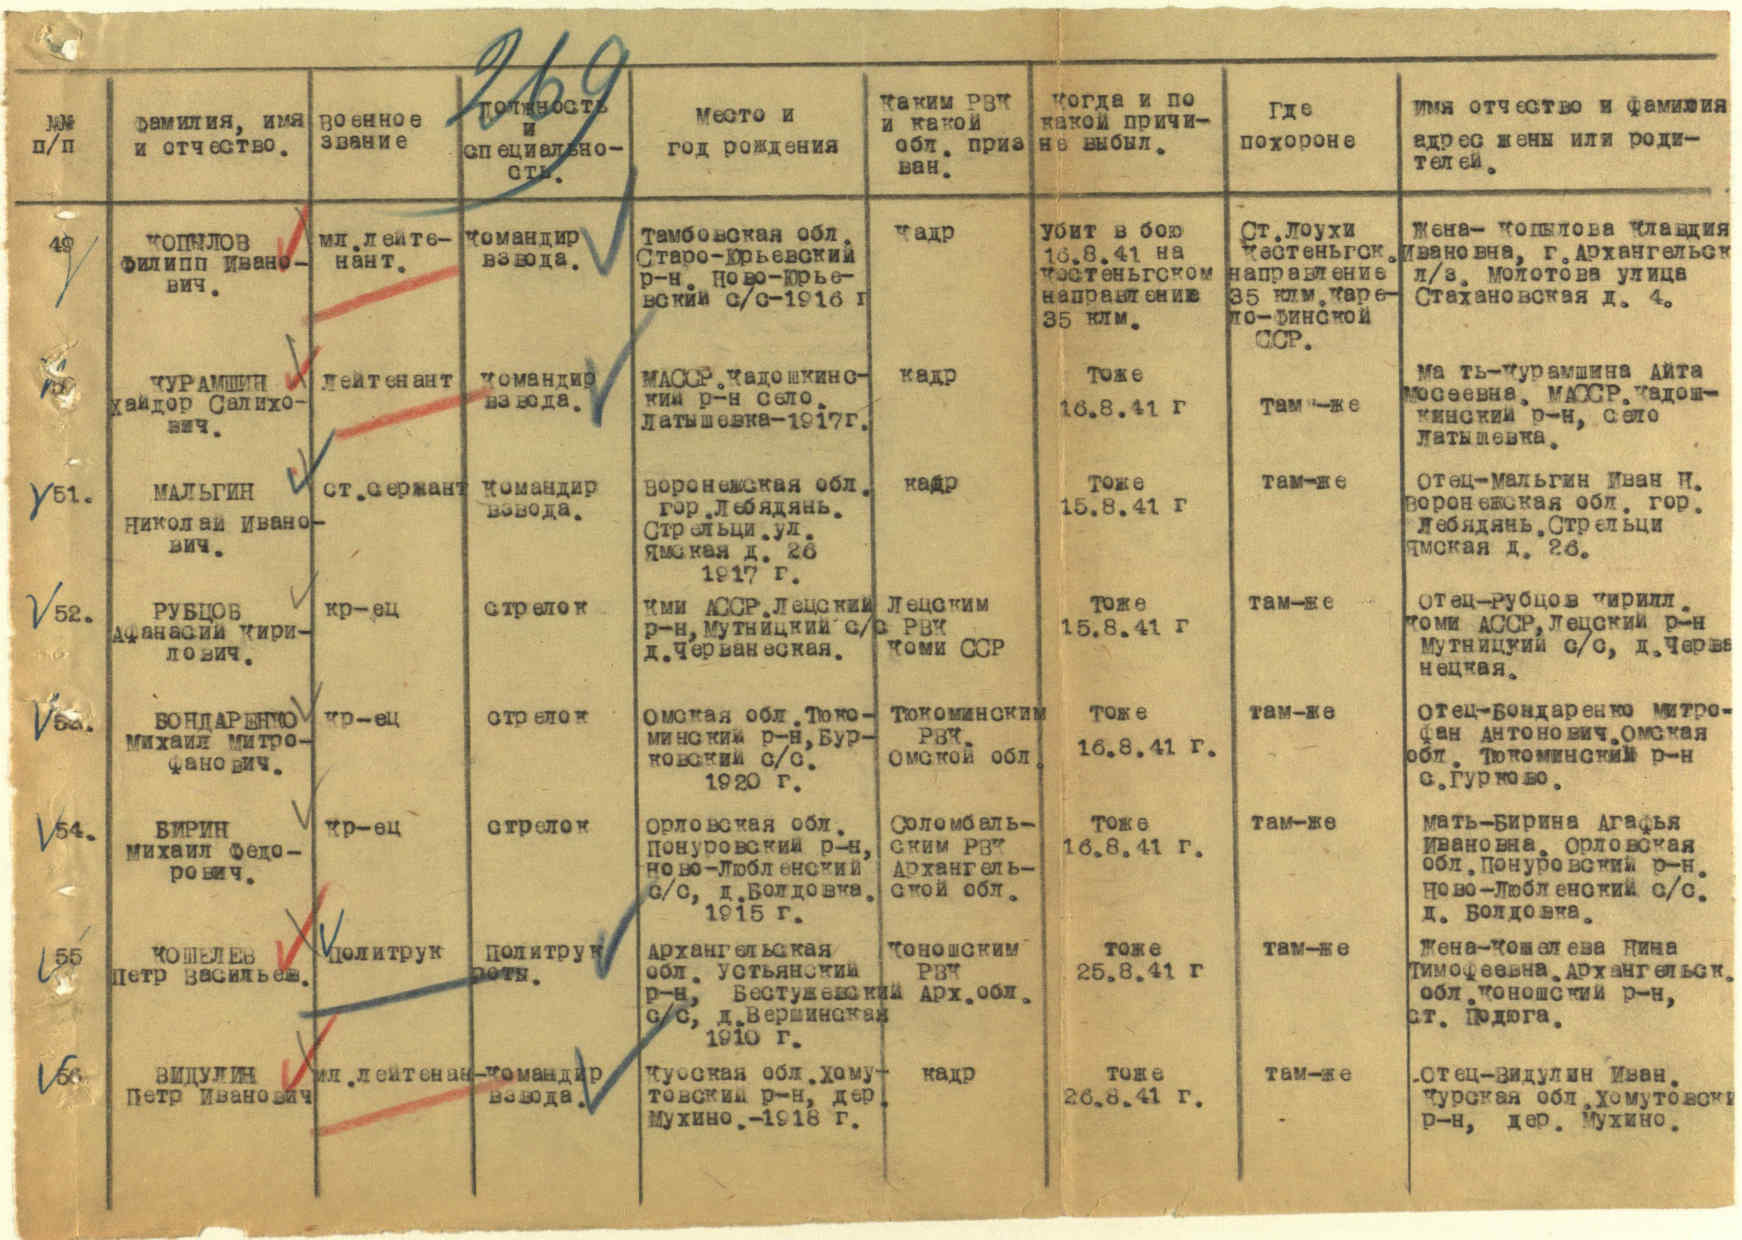 269
№№ п/п
Фамилия, имя и отчество.
Военное звание
Должность и специально-сть.
Место и год рождения
Каким РВК и какой обл. призван.
Когда и по какой причи-не выбыл.
Где похороне
Имя отчество и фамилия адрес жены или роди-телей.
49
КОПЫЛОВ
Филипп Ивано-
вич.
мл.лейте-
нант.
Командир
взвода.
Тамбовская обл.
Старо-Юрьевский
р-н. Ново-Юрье-
вский с/с-1916 г
кадр
Убит в бою
16.8.41 на
Костеньгском
направлении
35 клм.
Ст.Лоухи
Кестеньгск.
направление
35 клм.Каре-
ло-Финской
ССР.
Жена- Копылова Клавдия
Ивановна, г.Архангельск
л/з. Молотова улица
Стахановская д. 4.
50
КУРАМШИН
Хайдор Салихо-
вич.
Лейтенант
Командир
взвода.
МАССР.Кадошкинс-
кий р-н село.
Латышевка-1917г.
кадр
Тоже
16.8.41 г
там-же
Ма ть-Курамшина Айта
Мосеевна. МАССР.Кадош-
кинский р-н, село
Латышевка.
51.
МАЛЬГИН
Николай Ивано-
вич.
ст.сержант
Командир
взвода.
Воронежская обл.
гор.Лебядянь.
Стрельци.ул.
Ямская д. 26
1917 г.
кадр
Тоже
15.8.41 г
там-же
Отец-Мальгин Иван Н.
Воронежская обл. гор.
Лебядянь.Стрельци
Ямская д. 26.
52.
РУБЦОВ
Афанасий Кири-
лович.
кр-ец
стрелок
Кми АССР.Лецский
р-н,Мутницкий с/с
д.Черванеская.
Лецским
РВК
Коми ССР
Тоже
15.8.41 г
там-же
Отец-Рубцов Кирилл.
Коми АССР,Лецский р-н
Мутницкий с/с, д.Черва
нецкая.
53.
БОНДАРЕНКО
Михаил Митро-
фанович.
кр-ец
стрелок
Омская обл.Тюко-
минский р-н,Бур-
ковский с/с.
1920 г.
Тюкоминским
РВК.
Омской обл
Тоже
16.8.41 г.
там-же
Отец-Бондаренко Митро-
фан Антонович.Омская
обл. Тюкоминский р-н
с.Гурково.
54.
БИРИН
Михаил Федо-
рович.
кр-ец
стрелок
Орловская обл.
Понуровский р-н,
Ново-Любленский
с/с, д.Болдовка.
1915 г.
Соломбаль-
ским РВК
Архангель-
ской обл.
Тоже
16.8.41 г.
там-же
Мать-Бирина Агафья
Ивановна. Орловская
обл.Понуровский р-н.
Ново-Любленский с/с.
д. Болдовка.
55
КОШЕЛЕВ
Петр Васильев.
Политрук
Политрук
роты.
Архангельская
обл. Устьянский
р-н, Бестужевский
с/с, д.Вершинская
1910 г.
Коношским
РВК
Арх.обл.
тоже
25.8.41 г
там-же
Жена-Кошелева Нина
Тимофеевна.Архангельск.
обл.Коношский р-н,
ст. Подюга.
56
ВИДУЛИН
Петр Иванович
мл.лейтенан-
Командир
взвода.
Курская обл.Хому-
товский р-н, дер
Мухино.-1918 г.
кадр
тоже
26.8.41 г.
там-же
Отец-Видулин Иван.
Курская обл.Хомутовски
р-н, дер. Мухино.